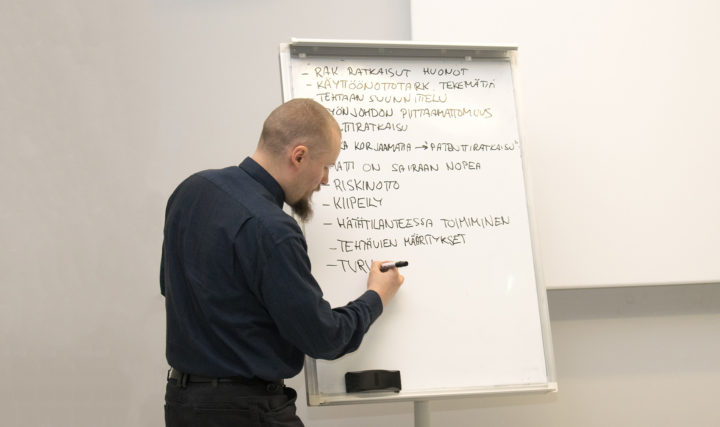 - RAK. RATKAISUT HUONOT
- KÄYTTÖÖNOTTOTARK. TEKEMÄTTÄ
TEHTAAN SUUNNITTELU
YÖNJOHDON PUTTAAMATTOMUUS
TTIRATKAISU
KA KORJAAMATTA → "PATENTTIRATKAISU"
ATTI ON SAIRAAN NOPEA
- RISKINOTTO
- KIIPEILY
- HÄTÄTILANTEESSA TOIMIMINEN
- TEHTÄVIEN MÄÄRITYKSET
- TURV